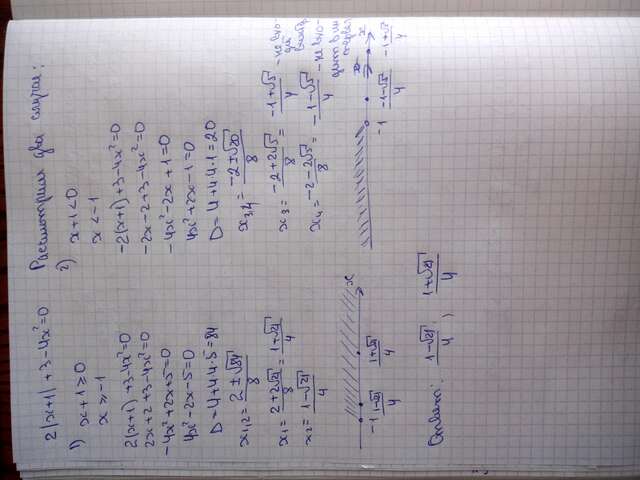 2|x+1|+3-4x²=0
Рассмотрим два случая:
1) x+1≥0
x≥-1
2(x+1)+3-4x²=0
2x+2+3-4x²=0
-4x²+2x+5=0
4x²-2x-5=0
D=4+4·4·5=84
x₁,₂=(2±√84)/8
x₁=(2+2√21)/8=(1+√21)/4
x₂=(1-√21)/4
-1 (1-√21)/4 (1+√21)/4 x
2) x+1<0
x<-1
-2(x+1)+3-4x²=0
-2x-2+3-4x²=0
-4x²-2x+1=0
4x²+2x-1=0
D=4+4·4·1=20
x₃,₄=(-2±√20)/8
x₃=(-2+2√5)/8=(-1+√5)/4 - не вхо-
дит
x₄=(-2-2√5)/8=(-1-√5)/4 - не вхо-
дит в ин
-1 (-1-√5)/4 (-1+√5)/4 x
Ответ: (1-√21)/4; (1+√21)/4